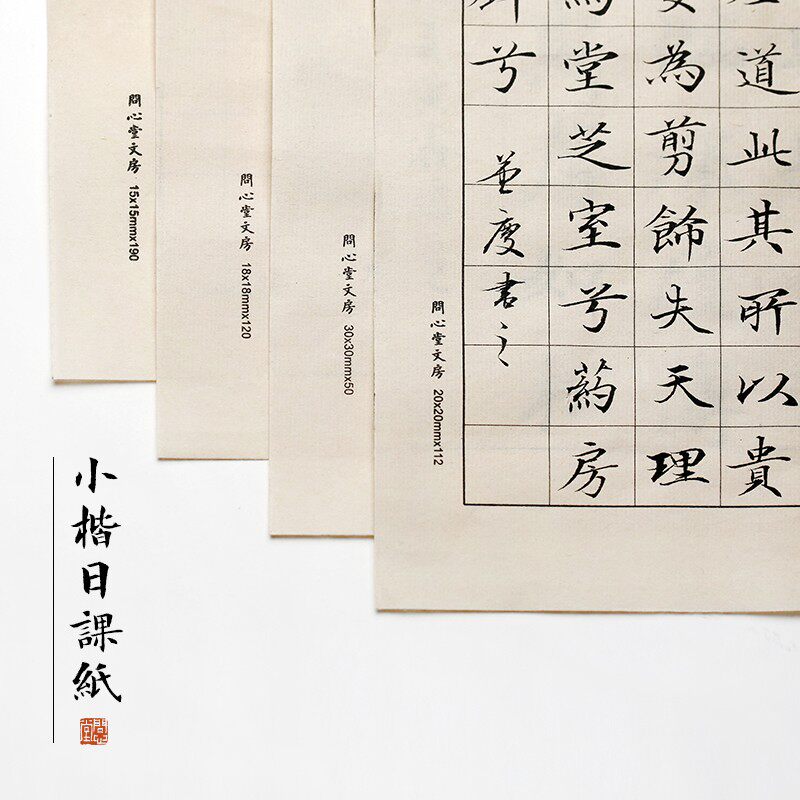 問心堂文房 15x15mmx190
問心堂文房 18x18mmx120
問心堂文房 30x30mmx50
問心堂文房 20x20mmx112
道此其所以貴
為剪飾失天理
堂芝室兮葯房
兮 書之
小楷日課紙
問心堂